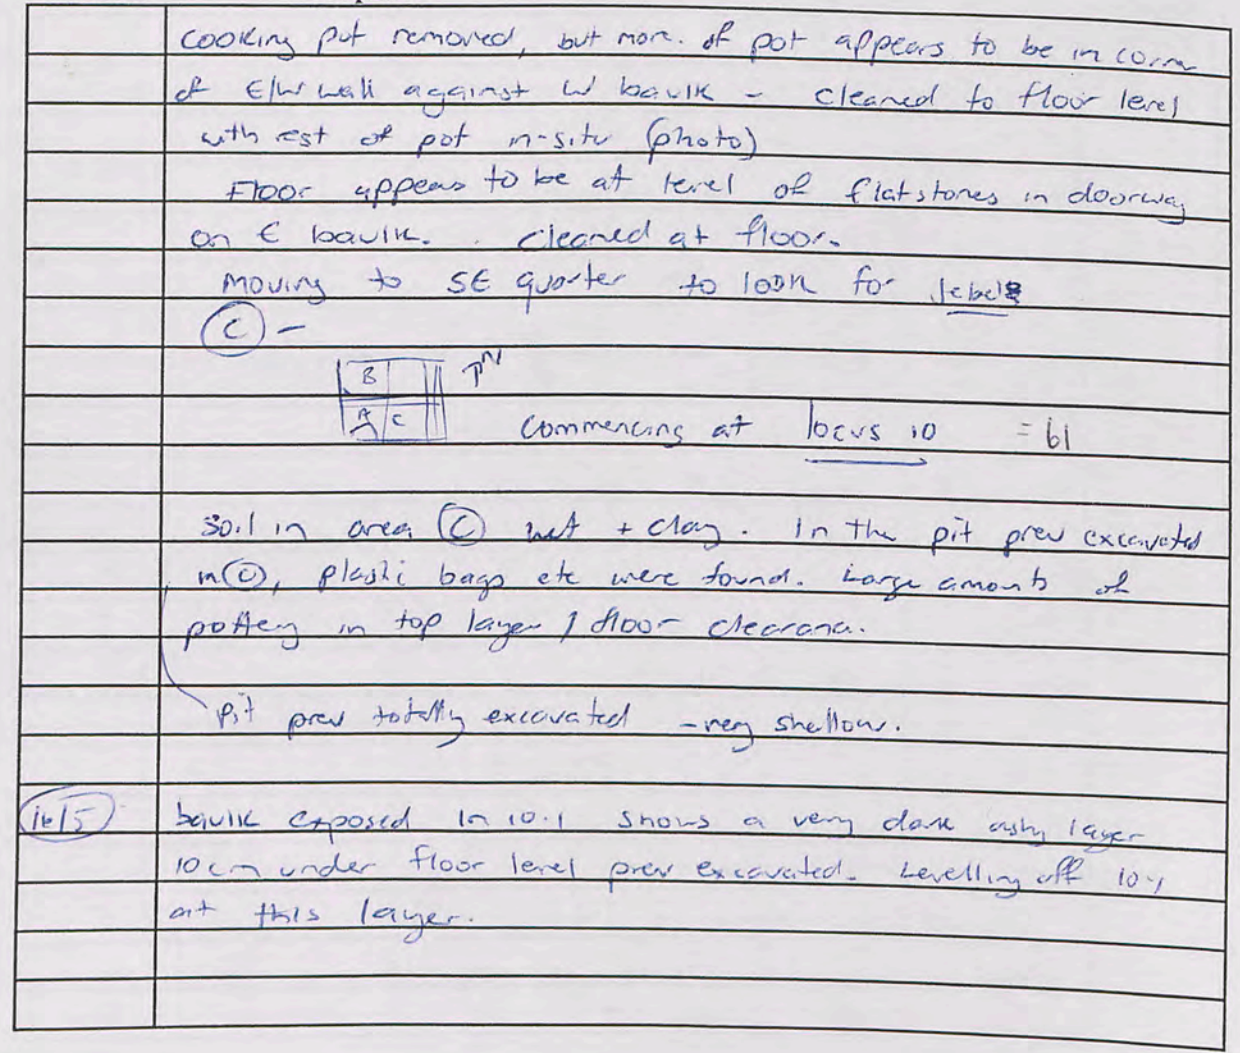 cooking pot removed, but more of pot appears to be in corner
of E/W wall against W baulk - cleaned to floor level
with rest of pot in-situ (photo)
Floor appears to be at level of flatstones in doorway
on E baulk. cleaned at floor.
Moving to SE quarter to look for jebel
C -
B
A C
commencing at locus 10 = 61
Soil in area C wet + clay. In the pit prev excavated
in C, plastic bags etc were found. Large amounts of
pottery in top layer / floor clearance.
Pit prev totally excavated - very shallow.
16/5
baulk exposed in 10.1 shows a very dark ashy layer
10cm under floor level prev excavated. Levelling off 10.1
at this layer.